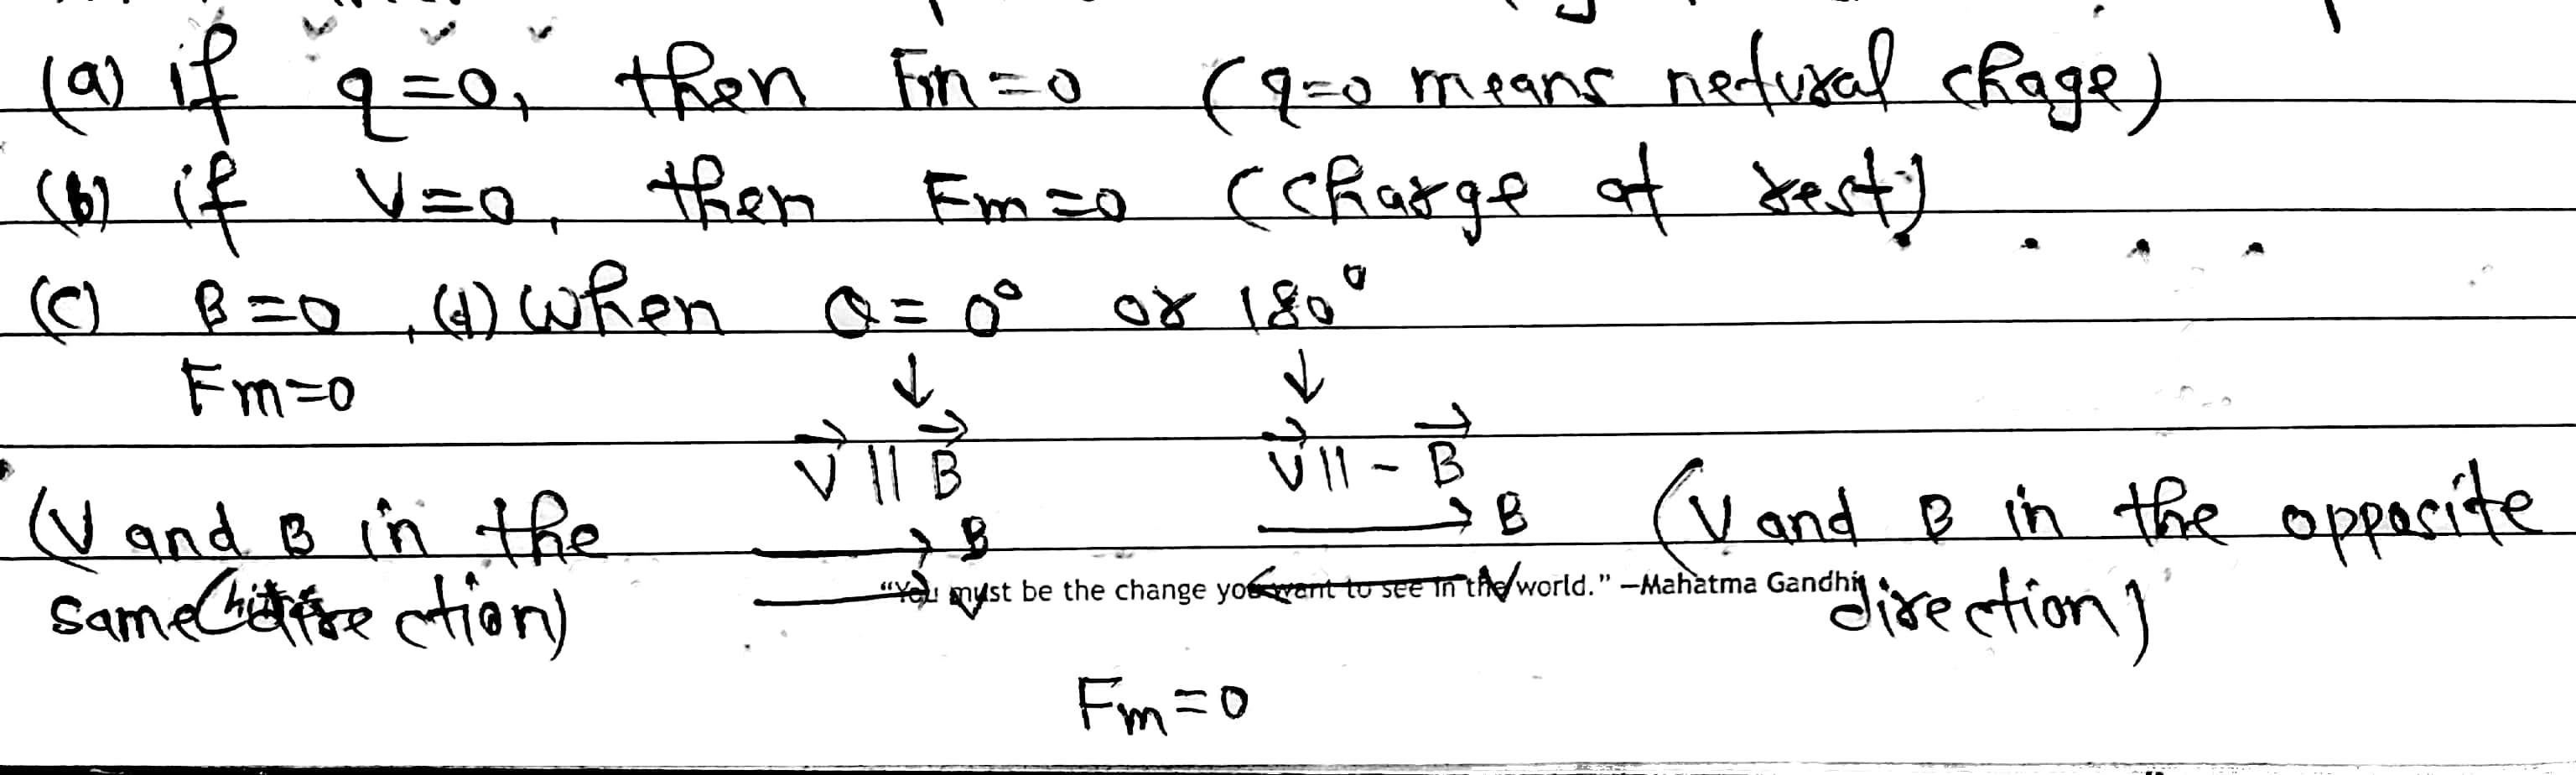 (a) if q=0, then Fm=0 (q=0 means netural chage)
(b) if V=0, then Fm=0 (charge at rest)
(c) B=0, (d) when θ=0° or 180°
Fm=0 ↓ ↓
V⃗ || B⃗ V⃗ || - B⃗
(V and B in the → B → B (V and B in the opposite
same direction) → V ← V direction)
"You must be the change you want to see in the world." —Mahatma Gandhi
Fm=0